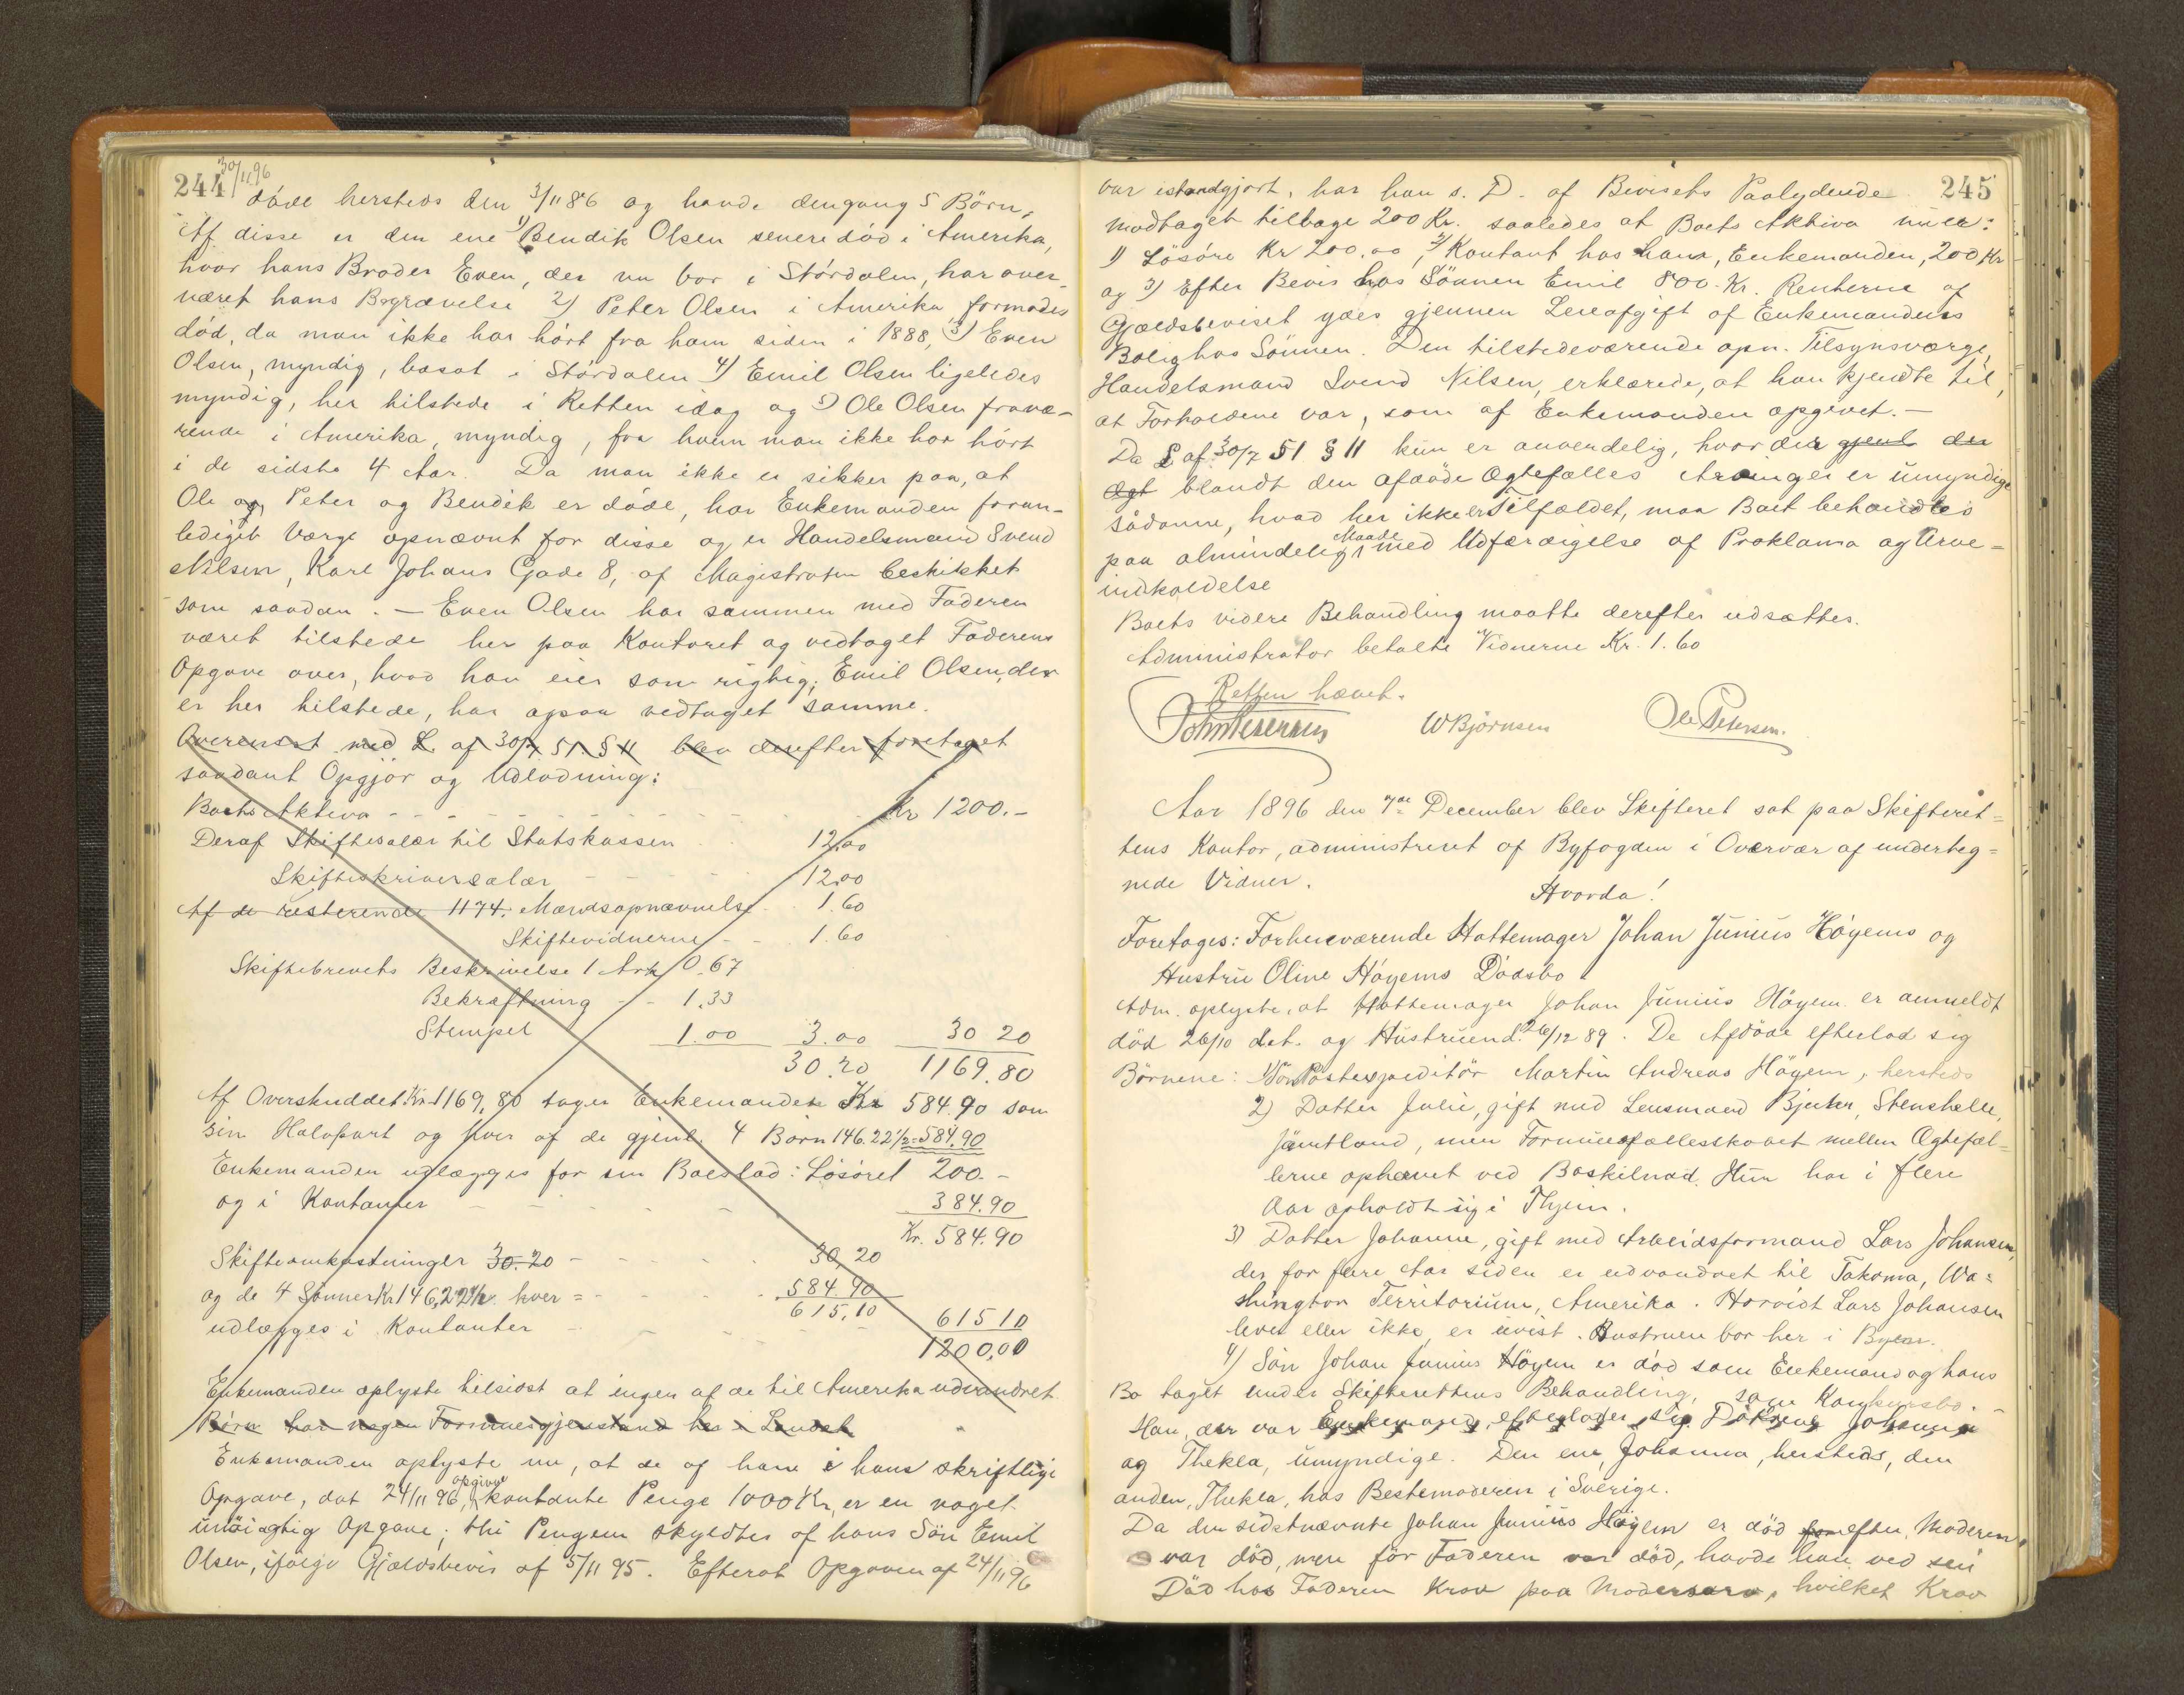 244 30/11 96
döde hersteds den 3/11 86 og havde dengang 5 Börn,
Af disse er den ene 1) Bendik Olsen senere död i Amerika,
hvor hans Broder Even, der nu bor i Stördalen, har over-
været hans Begravelse 2) Peter Olsen i Amerika formodes
död, da man ikke har hört fra ham siden i 1888, 3) Even
Olsen, myndig, bosat i Stördalen 4) Emil Olsen ligeledes
myndig, her tilstede i Retten idag og 5) Ole Olsen fravæ-
rende i Amerika, myndig, fra hvem man ikke har hört
i de sidste 4 Aar. Da man ikke er sikker paa, at
Ole og Peter og Bendik er döde, har Enkemanden foran-
lediget Værge opnævnt for disse og er Handelsmand Svend
Nilsen, Karl Johans Gade 8, af Magistraten beskikket
som saadan. — Even Olsen har sammen med Faderen
været tilstede her paa Kontoret og vedtaget Faderens
Opgave over, hvad han eier som rigtig; Emil Olsen, der
er her tilstede, har ogsaa vedtaget samme.
Overensst. med L. af 30/7. 51. § 11 blev derefter foretaget
saadant Opgjör og Udlodning:
Boets Aktiva - - - Kr 1200.-
Deraf Skiftesalær til Statskassen 12,00
Skifteskriversalær - - - 12,00
Af de resterende 1174. Mændsopnævnelse 1.60
Skiftevidnerne - - 1.60
Skiftebrevets Beskrivelse 1 Ark 0.67
Bekræftning - - 1.33
Stempel 1.00 3.00 30 20
30.20 1169.80
Af Overskuddet Kr 1169,80 tager Enkemanden Kr 584.90 som
sin Halvpart og hver af de gjenl. 4 Börn 146.22½=584.90
Enkemanden udlægges for sin Boeslod: Lösöret 200.-
og i Kontanter - - - 384.90
Kr. 584.90
Skifteomkostninger 30.20 - - - 30,20
og de 4 Sönner Kr 146,22½ hver = - - - 584.90
615,10 615 10
udlægges i Kontanter - - -
1200,00
Enkemanden oplyste tilsidst at ingen af de til Amerika udvandret
Börn har nogen Formuesgjenstand her i Landet
Enkemanden oplyste nu, at de af ham i hans skriftlige
Opgave, dat 24/11 96, opgivne kontante Penge 1000 Kr, er en noget
unöiagtig Opgave; thi Pengene skyldtes af hans Sön Emil
Olsen, ifölge Gjældsbevis af 5/11 95. Efterat Opgaven af 24/11 96
245
var istandgjort, har han s. D. af Bevisets Paalydende
modtaget tilbage 200 Kr. saaledes at Boets Aktiva nu er:
1) Lösöre Kr 200.00, 2) Kontant hos ham, Enkemanden, 200 Kr
og 3) Efter Bevis hos Sönnen Emil 800 Kr. Renterne af
Gjældsbeviset ydes gjennem Leieafgift af Enkemandens
Bolig hos Sönnen. Den tilstedeværende opn. Tilsynsværge,
Handelsmand Svend Nilsen, erklærede, at han kjendte til,
at Forholdene var, som af Enkemanden opgivet.—
Da L af 30/7 51 § 11 kun er anvendelig, hvor der gjenl der
Ægt blandt den afdöde Ægtefælles Arvinger er umyndige
sådanne, hvad her ikke er Tilfældet, maa Boet behandles
paa almindelig Maade med Udfærdigelse af Proklama og Arve-
indkaldelse
Boets videre Behandling maatte derefter udsættes.
Administrator betalte Vidnerne Kr. 1.60
Retten hævet.
WBjörnsen Ole Petersen.
Aar 1896 den 7de December blev Skifteret sat paa Skifteret-
tens Kontor, administreret af Byfogden i Overvær af underteg-
nede Vidner.
Hvorda!
Foretages: Forhenværende Hattemager Johan Junius Höyems og
Hustru Oline Höyems Dödsbo
Adm. oplyste, at Hattemager Johan Junius Höyem er anmeldt
död 26/10 d.A. og Hustruen d. 26/12 89. De Afdöde efterlod sig
Börnene: 1) Sön Postexpeditör Martin Andreas Höyem, hersteds
2) Datter Julie, gift med Lensmand Bjerker, Stenshelle,
Jämtland, men Formuesfællesskabet mellem Ægtefæl-
lerne ophævet ved Boskilnad. Hun har i flere
Aar opholdt sig i Thjem.
3) Datter Johanne, gift med Arbeidsformand Lars Johansen,
der for flere Aar siden er udvandret til Takoma, Wa-
shington Territorium, Amerika. Hvorvidt Lars Johansen
lever eller ikke, er uvist. Hustruen bor her i Byen.
4) Sön Johan Junius Höyem er död som Enkemand og hans
Bo taget under Skifterettens Behandling, som Konkursbo.-
Han, der var Enkemand, efterlader sig Dötrene Johanna
og Thekla, umyndige. Den ene, Johanna, hersteds, den
anden, Thekla, hos Bestemoderen i Sverige.
Da den sidstnævnte Johan Junius Höyem er död for efter Moderen
var död, men för Faderen var död, havde han ved sin
Död hos Faderen Krav paa Modersarv, hvilket Krav